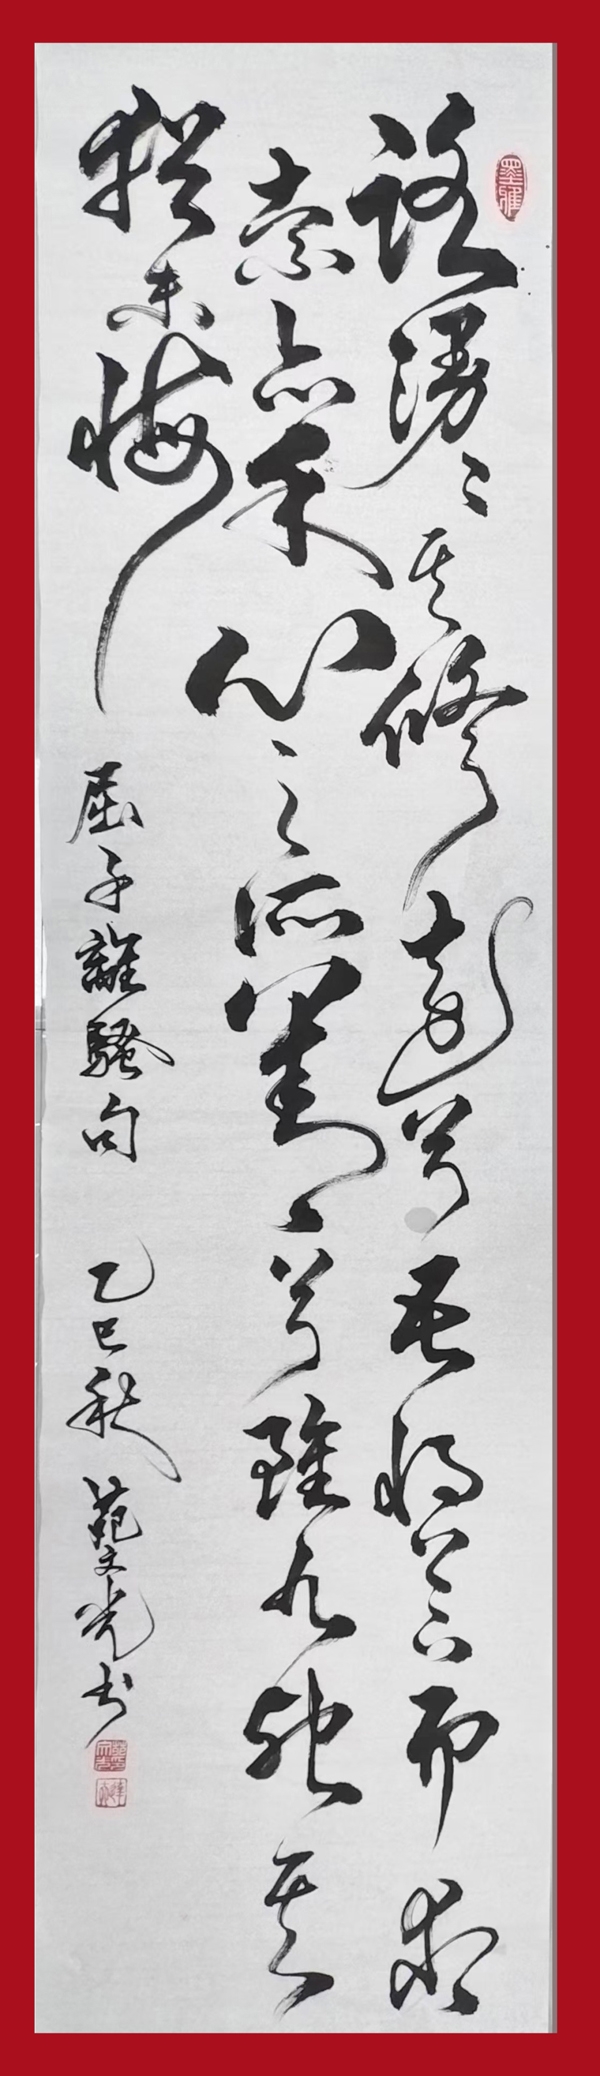 路漫々其修遠兮吾將上下而求
索亦余心之所善兮雖九死其
猶未悔
屈子離騷句 乙巳秋 范文光书